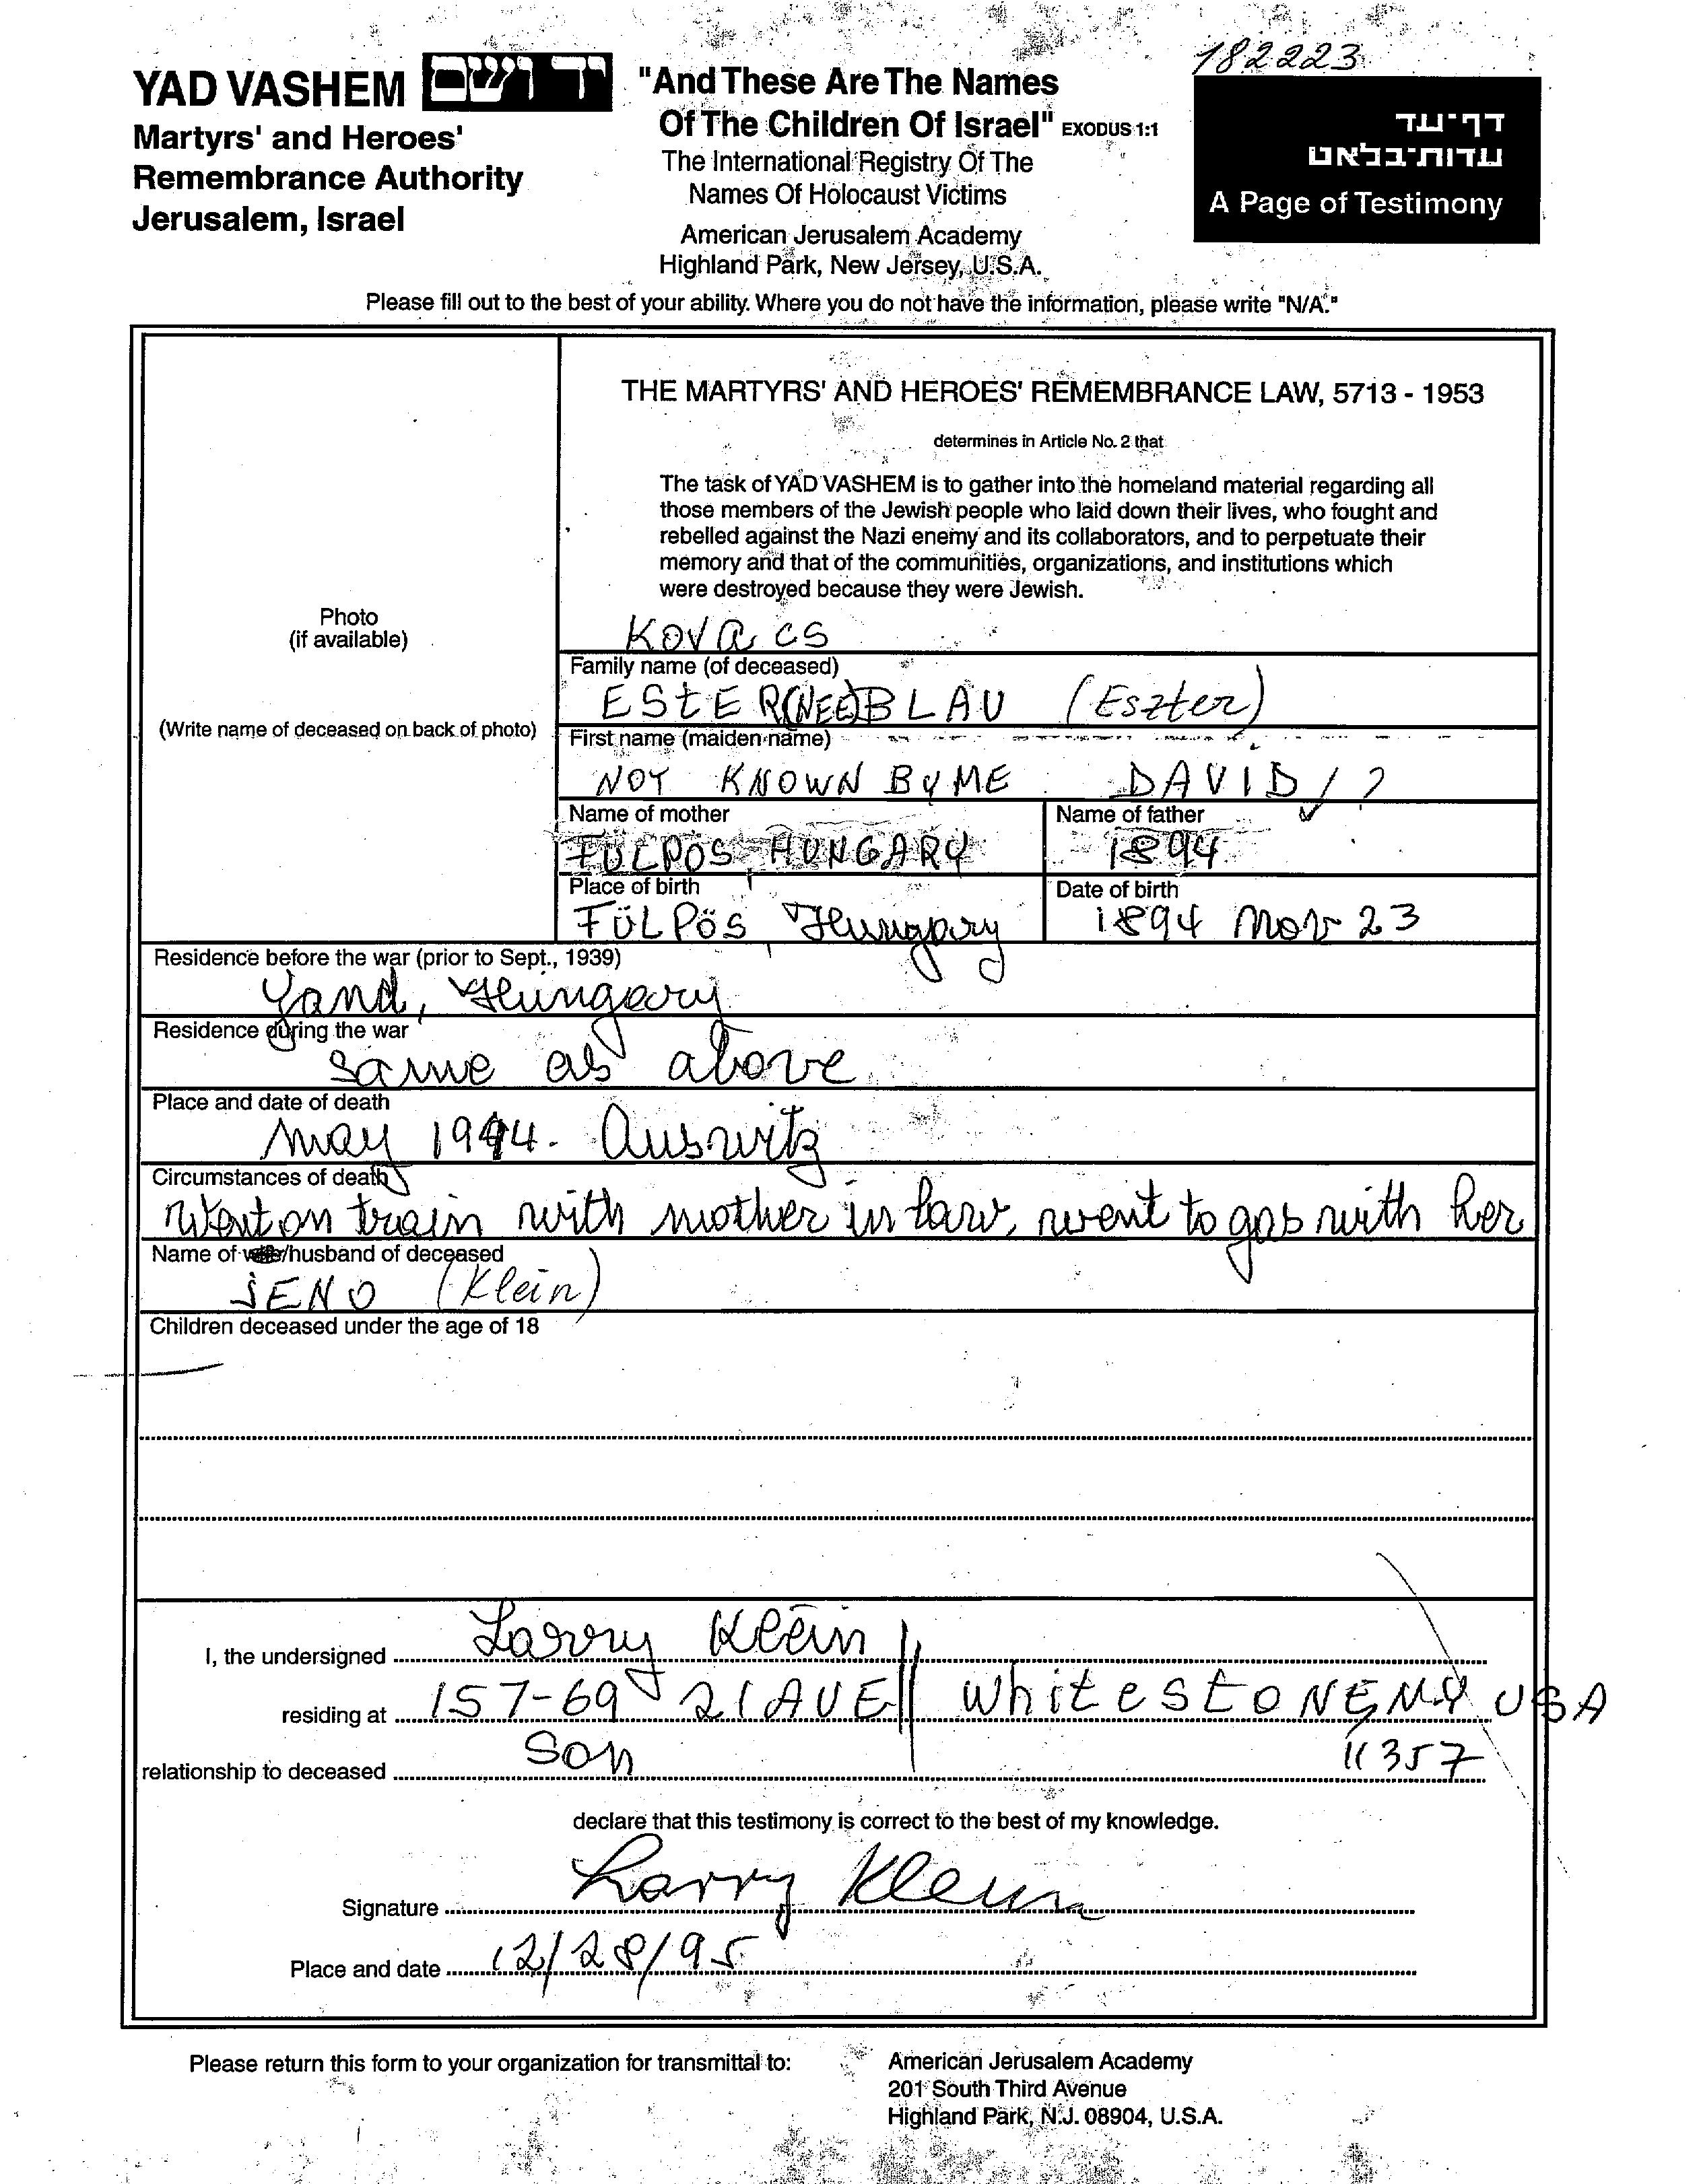 182223
YAD VASHEM יד ושם
Martyrs' and Heroes'
Remembrance Authority
Jerusalem, Israel
"And These Are The Names
Of The Children Of Israel" EXODUS 1:1
The International Registry Of The
Names Of Holocaust Victims
American Jerusalem Academy
Highland Park, New Jersey, U.S.A.
דף-עד
עדות-בלאט
A Page of Testimony
Please fill out to the best of your ability. Where you do not have the information, please write "N/A."
THE MARTYRS' AND HEROES' REMEMBRANCE LAW, 5713 - 1953
determines in Article No. 2 that
The task of YAD VASHEM is to gather into the homeland material regarding all
those members of the Jewish people who laid down their lives, who fought and
rebelled against the Nazi enemy and its collaborators, and to perpetuate their
memory and that of the communities, organizations, and institutions which
were destroyed because they were Jewish.
Photo
(if available)
(Write name of deceased on back of photo)
KOVACS
Family name (of deceased)
ESTER (NEE) BLAU (Eszter)
First name (maiden name)
NOT KNOWN BY ME DAVID / ?
Name of mother Name of father
FÜLPÖS, HUNGARY 1894
Place of birth Date of birth
FÜLPÖS, Hungary 1894 Nov 23
Residence before the war (prior to Sept., 1939)
Yand, Hungary
Residence during the war
Same as above
Place and date of death
May 1944. Auswitz
Circumstances of death
Went on train with mother in law, went to gas with her
Name of wife/husband of deceased
JENO (Klein)
Children deceased under the age of 18
I, the undersigned Larry Klein
residing at 157-69 21 AVE || WhitestONE NY USA
11357
relationship to deceased Son
declare that this testimony is correct to the best of my knowledge.
Signature Larry Klein
Place and date 12/28/95
Please return this form to your organization for transmittal to:
American Jerusalem Academy
201 South Third Avenue
Highland Park, N.J. 08904, U.S.A.